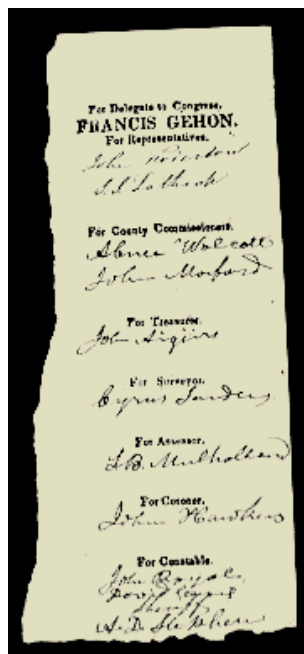 For Delegate to Congress,
FRANCIS GEHON.
For Representatives.
John
For County Commissioners.
Abner Wolcott
John Morford
For Treasurer.
John
For Surveyor.
Cyrus Sanders
For Assessor.
L.B. Mulholland
For Coroner.
John Hawkins
For Constable.
John
Sheriff
A. D. Stephen